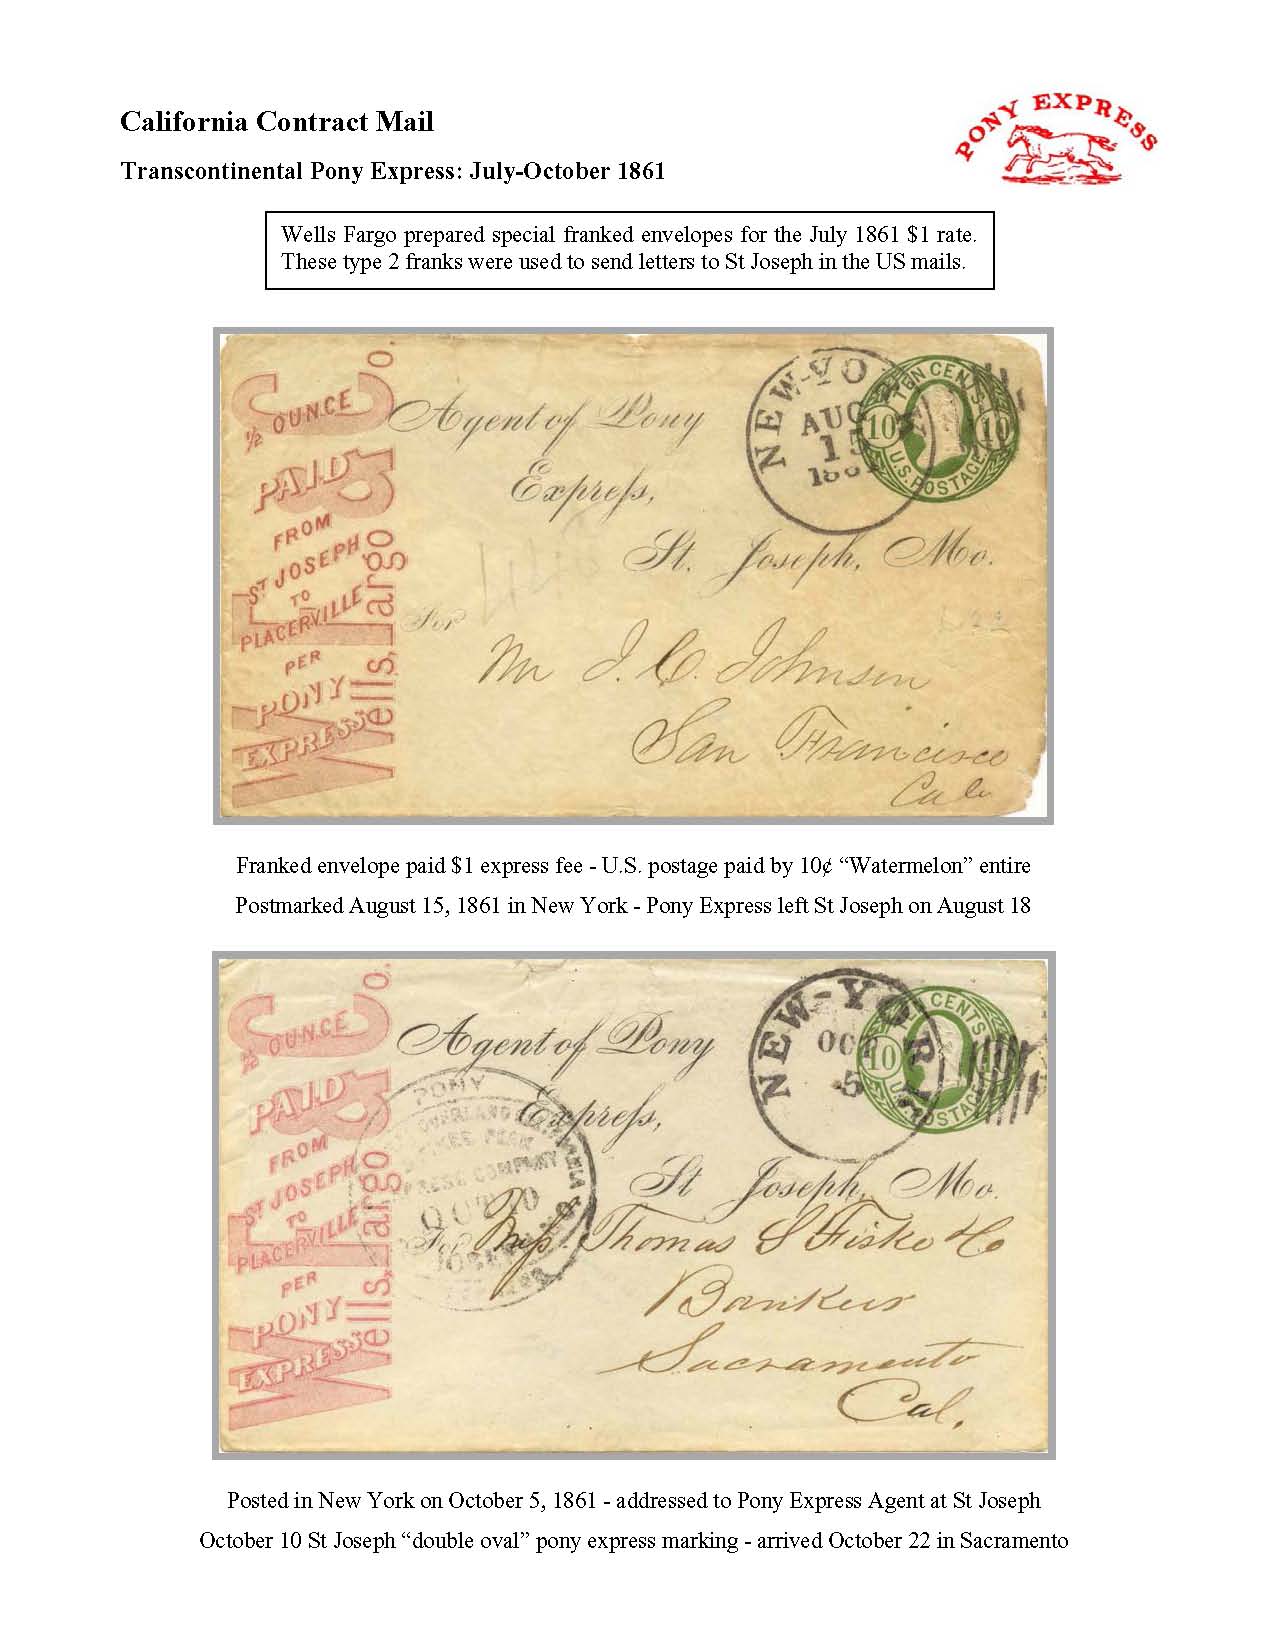 California Contract Mail
PONY EXPRESS
Transcontinental Pony Express: July-October 1861
Wells Fargo prepared special franked envelopes for the July 1861 $1 rate.
These type 2 franks were used to send letters to St Joseph in the US mails.
Wells, Fargo & Co.
½ OUNCE
PAID
FROM
ST JOSEPH
TO
PLACERVILLE
PER
PONY
EXPRESS
Agent of Pony
Express,
St. Joseph, Mo.
For
Mr J. C. Johnson
San Francisco
Cal
NEW-YO
AUG
15
186
TEN CENTS
10 10
U.S. POSTAGE
Franked envelope paid $1 express fee - U.S. postage paid by 10¢ “Watermelon” entire
Postmarked August 15, 1861 in New York - Pony Express left St Joseph on August 18
Wells, Fargo & Co.
½ OUNCE
PAID
FROM
ST JOSEPH
TO
PLACERVILLE
PER
PONY
EXPRESS
Agent of Pony
Express,
St. Joseph, Mo.
For Mess. Thomas S Fiske & Co
Bankers
Sacramento
Cal.
NEW-YOR
OCT
5
CENTS
10 10
U.S. POSTAGE
PONY
OVERLAND
PIKES PEAK
COMPANY
OCT 10
JOSEPH
Posted in New York on October 5, 1861 - addressed to Pony Express Agent at St Joseph
October 10 St Joseph “double oval” pony express marking - arrived October 22 in Sacramento